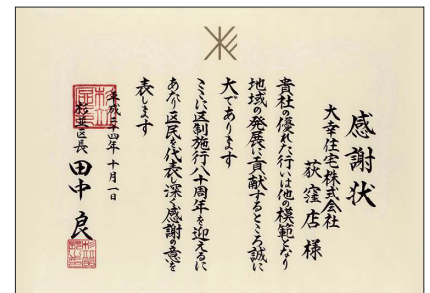 感謝状
大幸住宅株式会社
荻窪店 様
貴社の優れた行いは他の模範となり
地域の発展に貢献するところ誠に
大であります
ここに区制施行八十周年を迎えるに
あたり区民を代表し深く感謝の意を
表します
平成二十四年十月一日
杉並区長 田中 良